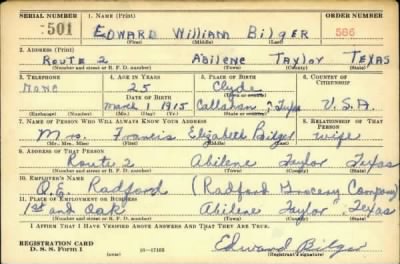 SERIAL NUMBER 1. NAME (Print) ORDER NUMBER
501 EDWARD William BILGER 586
(First) (Middle) (Last)
2. ADDRESS (Print)
ROUTE 2 Abilene Taylor TEXAS
(Number and street or R. F. D. number) (Town) (County) (State)
3. TELEPHONE 4. AGE IN YEARS 5. PLACE OF BIRTH 6. COUNTRY OF CITIZENSHIP
None 25 Clyde
DATE OF BIRTH (Town or county)
March 1 1915 Callahan Texas U.S.A.
(Mo.) (Day) (Yr.) (State or country)
7. NAME OF PERSON WHO WILL ALWAYS KNOW YOUR ADDRESS 8. RELATIONSHIP OF THAT PERSON
Mrs. Francis Elizabeth Bilger wife
(Mr., Mrs., Miss) (First) (Middle) (Last)
9. ADDRESS OF THAT PERSON
Route 2 Abilene Taylor Texas
(Number and street or R. F. D. number) (Town) (County) (State)
10. EMPLOYER'S NAME
O.E. Radford (Radford Grocery Company)
11. PLACE OF EMPLOYMENT OR BUSINESS
1st and Oak Abilene Taylor Texas
(Number and street or R. F. D. number) (Town) (County) (State)
I AFFIRM THAT I HAVE VERIFIED ABOVE ANSWERS AND THAT THEY ARE TRUE.
REGISTRATION CARD
D. S. S. FORM 1 (over) Edward Bilger
(Registrant's signature)